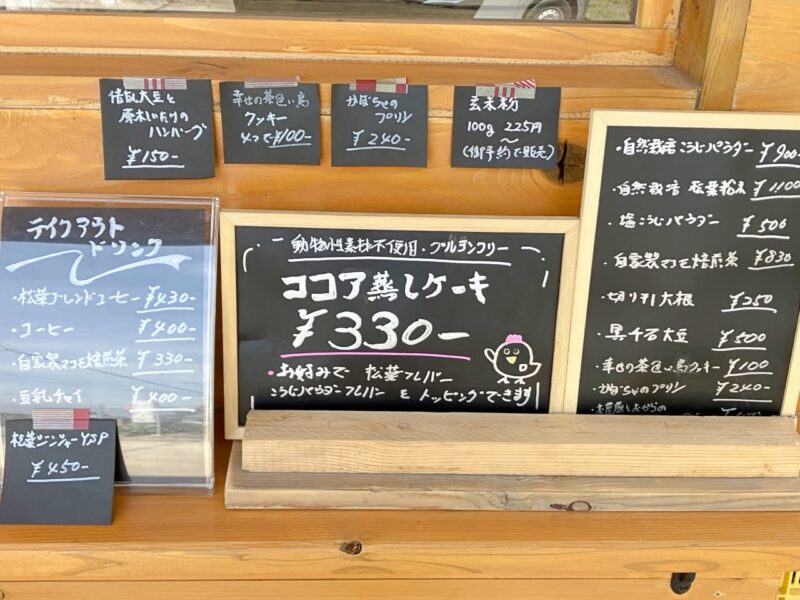 大豆と
ハンバーグ
¥150-
幸せの茶色い鳥
クッキー
4つで¥100-
かぼちゃの
プリン
¥240-
玄米粉
100g 225円
〜
(御予約で販売)
テイクアウト
ドリンク
・松葉ブレンドコーヒー ¥430-
・コーヒー ¥400-
・自家製マコモ焙煎茶 ¥330-
・豆乳チャイ ¥400-
松葉ジンジャーYSP
¥450-
動物性素材不使用・グルテンフリー
ココア蒸しケーキ
¥330-
・お好みで 松葉フレーバー
こうじパウダーフレーバー をトッピングできます
・自然栽培こうじパウダー ¥900-
・自然栽培 松葉粉末 ¥1100
・塩こうじパウダー ¥500
・自家製マコモ焙煎茶 ¥830
・切り干大根 ¥250
・黒千石大豆 ¥500
・幸せの茶色い鳥クッキー ¥100
・かぼちゃのプリン ¥240-